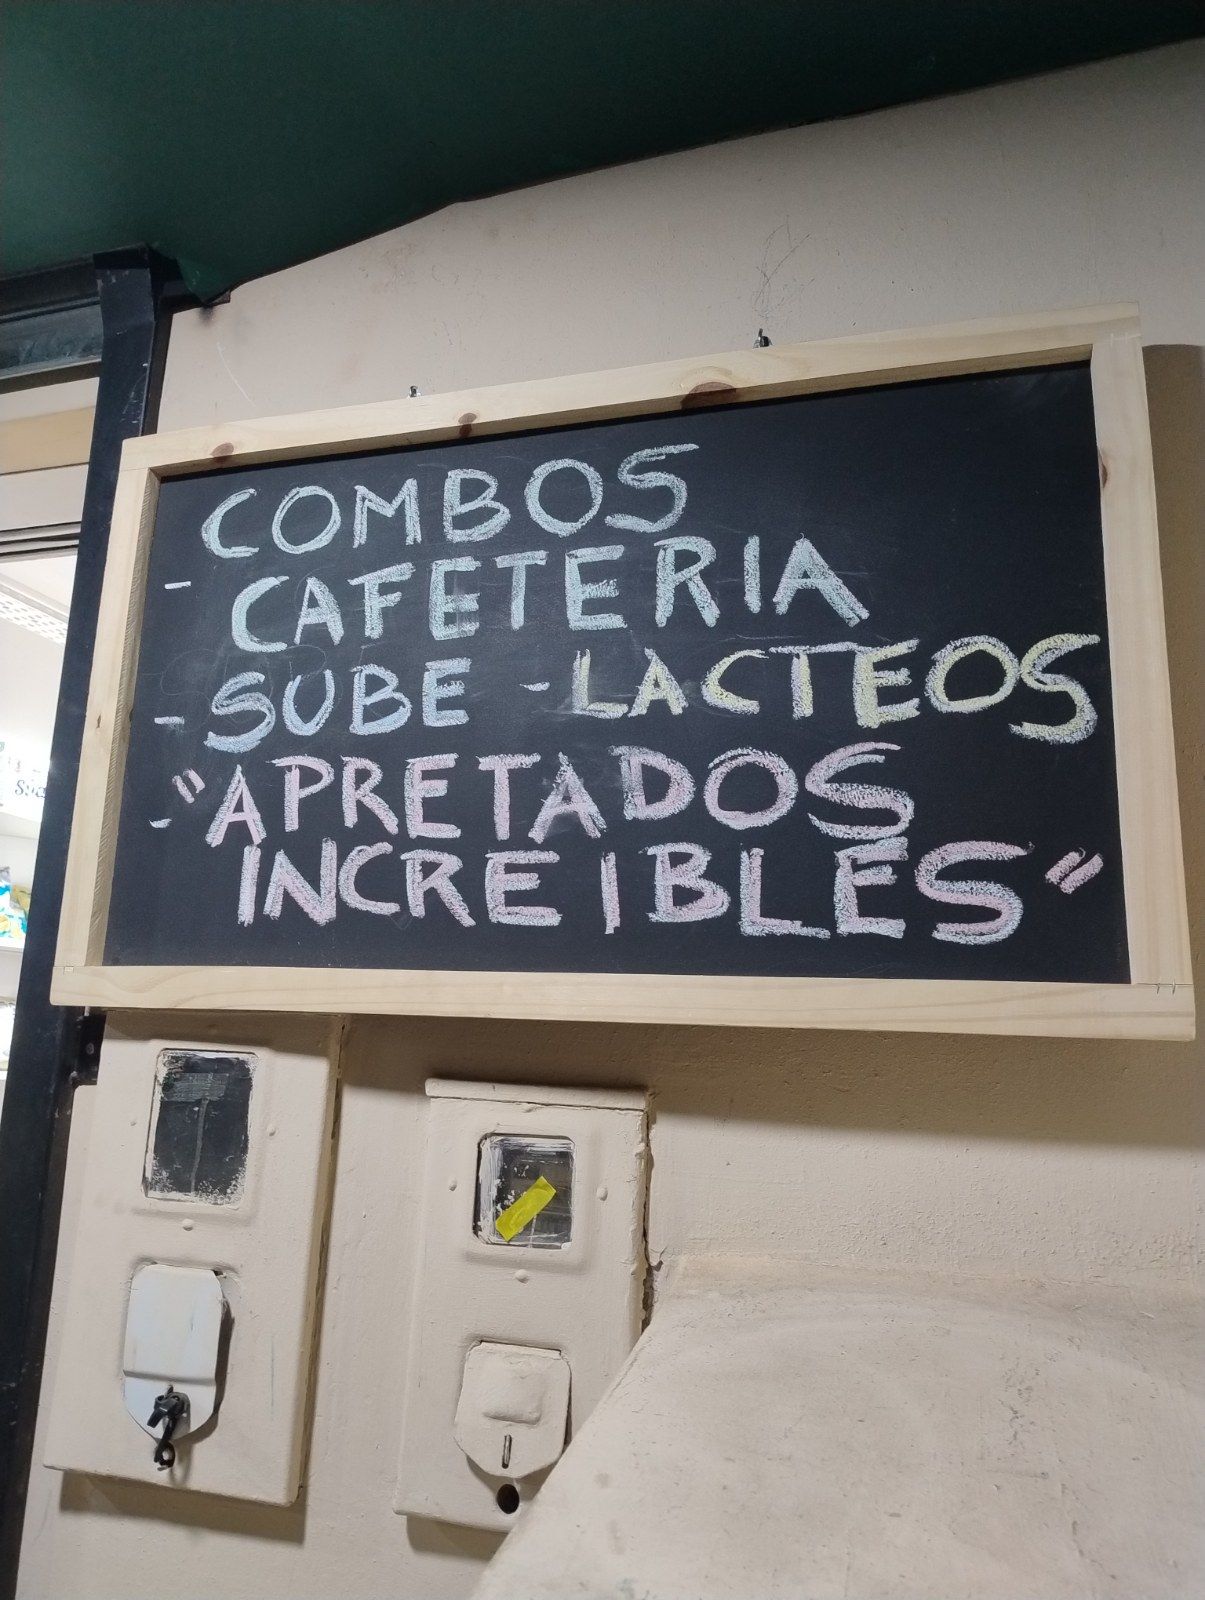 COMBOS
- CAFETERIA
- SUBE - LACTEOS
- "APRETADOS
INCREIBLES"